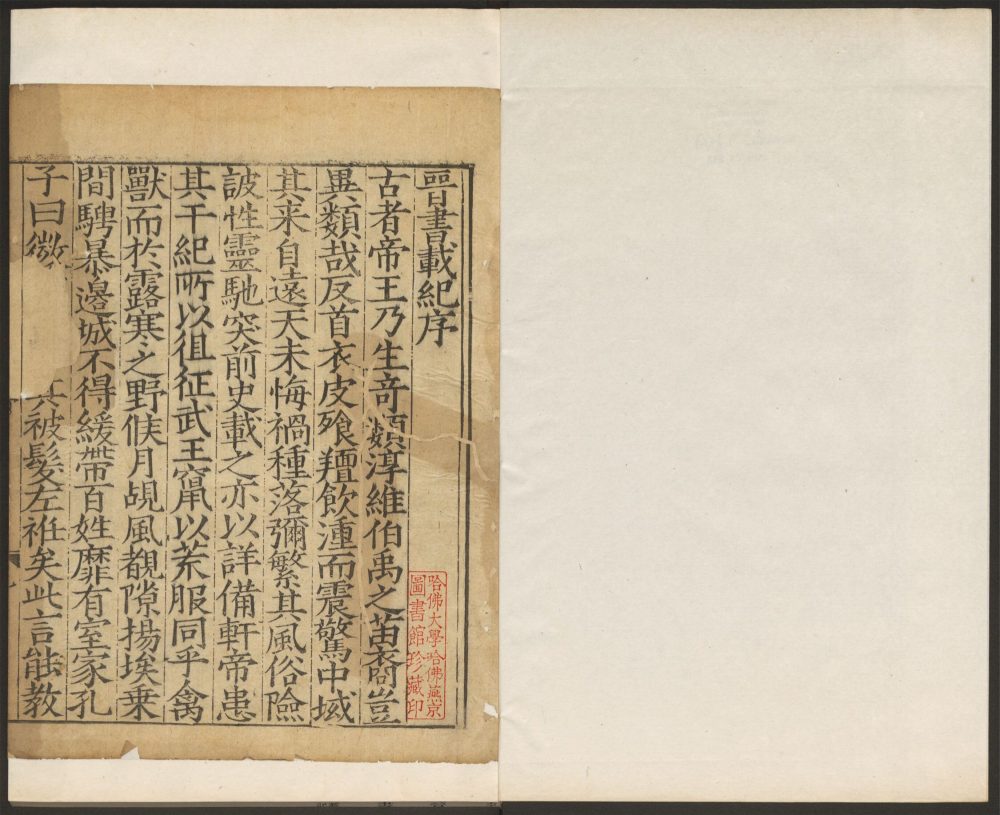 晉書載紀序
古者帝王乃生奇類淳維伯禹之苗裔豈
異類哉反首衣皮飱羶飲湩而震驚中域
其来自遠天未悔禍種落彌繁其風俗險
詖性靈馳突前史載之亦以詳備軒帝患
其干紀所以徂征武王竄以荒服同乎禽
獸而於露寒之野候月覘風覩隙揚埃乗
間騁暴邊城不得緩帶百姓靡有室家孔
子曰微
其被髮左衽矣此言能教
哈佛大學哈佛燕京
圖書館珍藏印